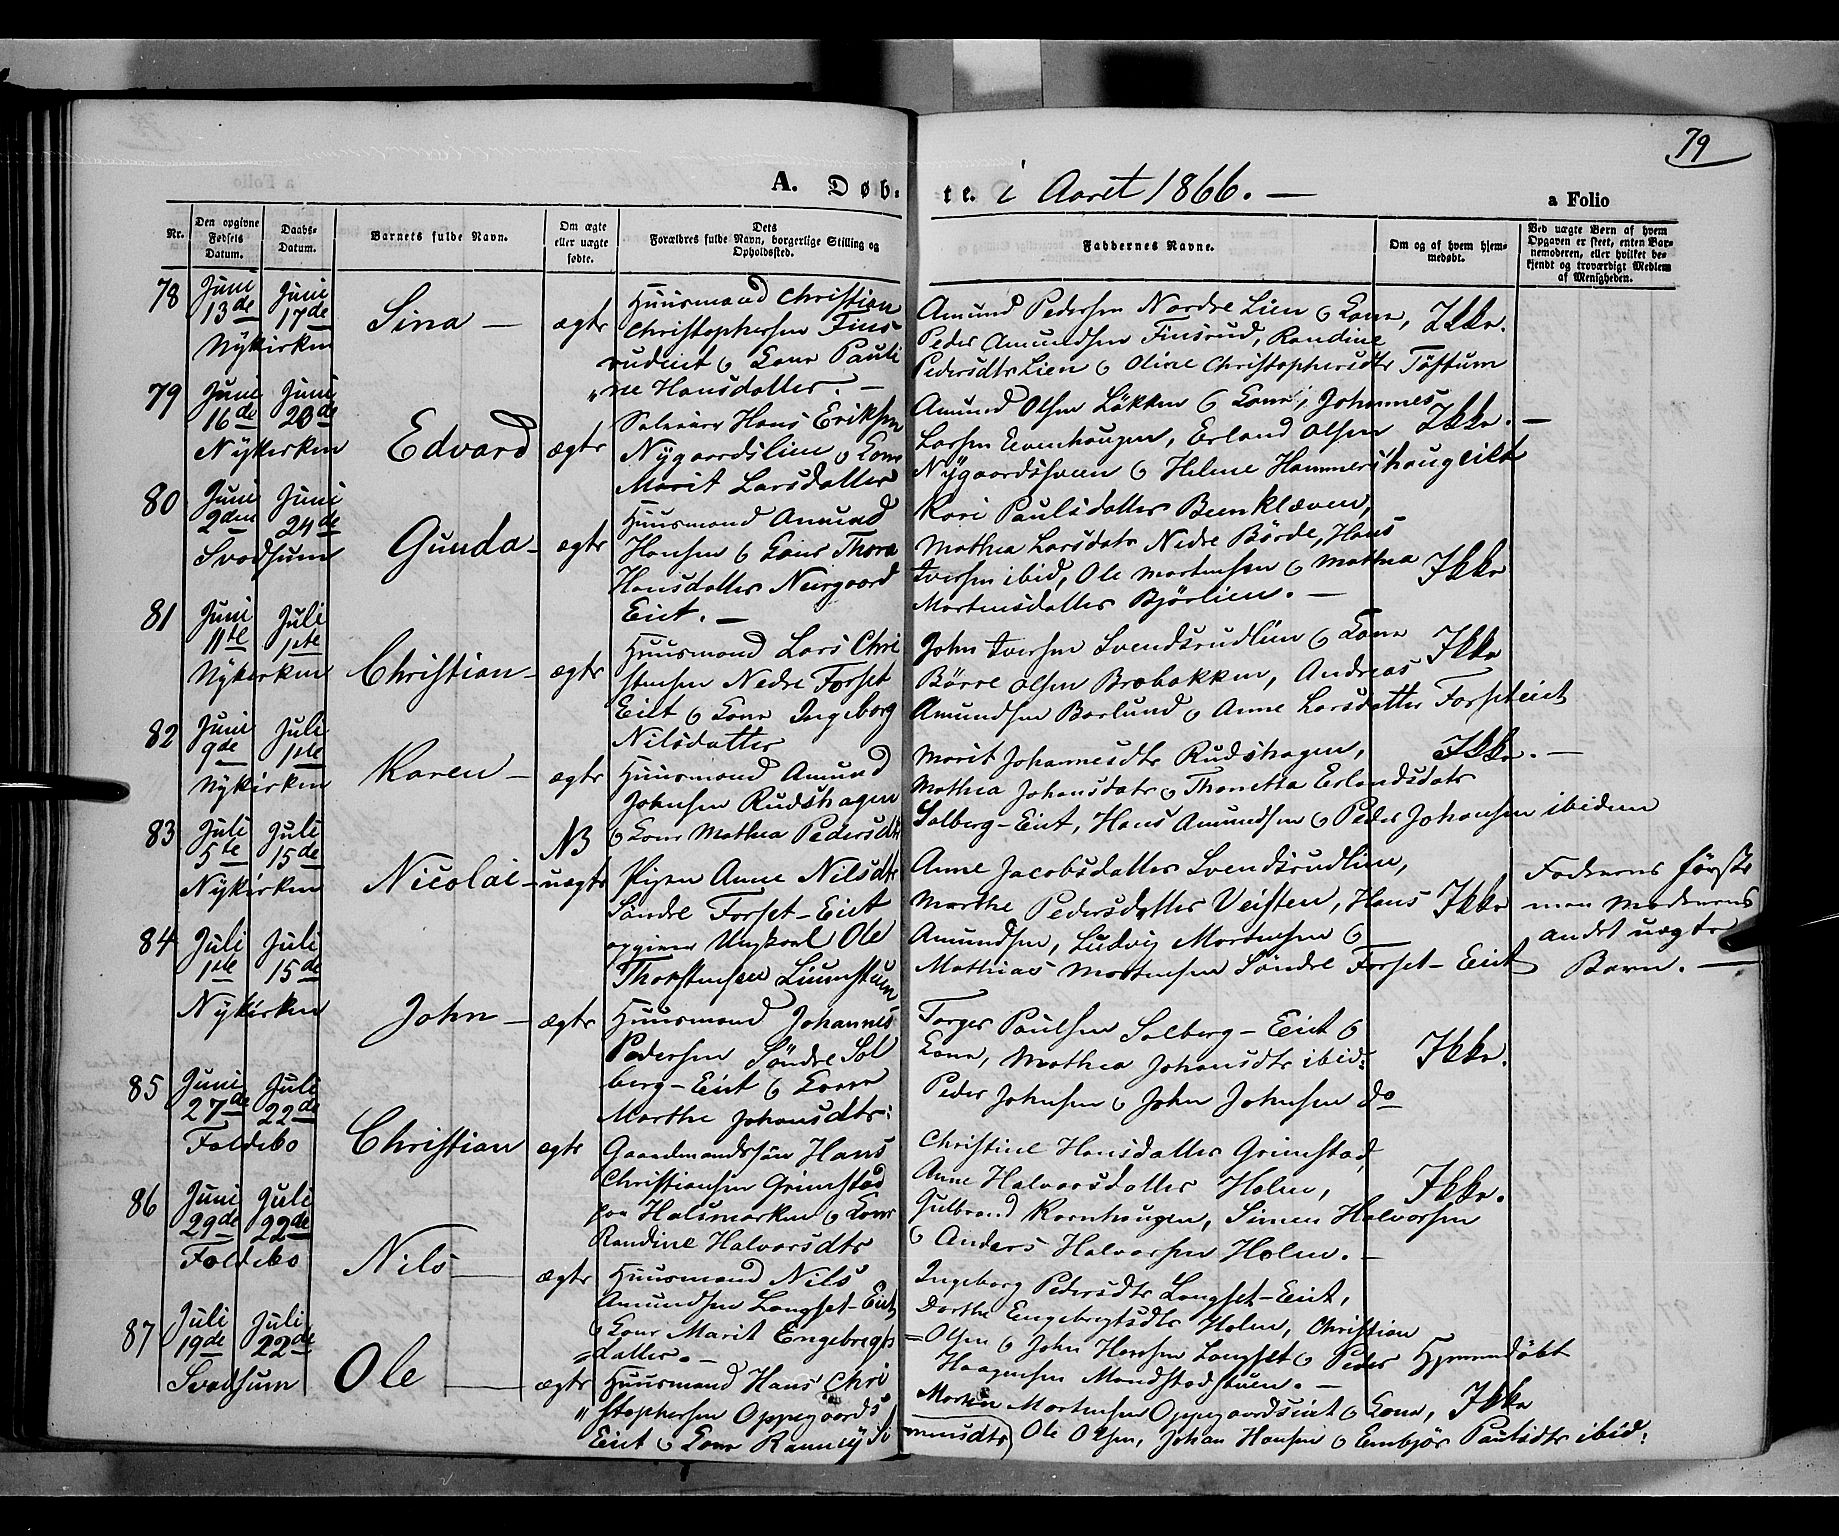 79
A. Døb-
te. i Aaret 1866. —
a Folio
Nr.
Den opgivne Fødsels Datum.
Daabs-Datum.
Barnets fulde Navn.
Om ægte eller uægte fødte.
Dets Forældres fulde Navn, borgerlige Stilling og Opholdssted.
Faddernes Navne.
Om og af hvem hjem-medøbt.
Ved uægte Børn af hvem Opgaven er skeet, enten Bar-nemoderen, eller hvilket be-kjendt og troværdigt Medlem af Menigheden.
78 Juni 13de Juni 17de
Nykirken
Sina — ægte
Huusmand Christian
Christophersen Fins-
rudeiet & Kone Pauli
"ne Hansdatter. —
Amund Pedersen Nordre Lien & Kone,
Peder Amundsen Finsrud, Randine
Pedersdtr Lien & Oline Christophersdtr Töftum
Ikke.
79 Juni 16de Juni 20de
Nykirken
Edvard ægte
Hans Eriksen
Nygaardslien & Kone
Marit Larsdatter
Amund Olsen Løkken & Kone, Johannes
Larsen Evenhaugen, Erland Olsen
Nygaardssveen & Helene Hammershaugeiet
Ikke. —
80 Juni 2den Juni 24de
Svadsum
Gunda — ægte
Huusmand Amund
Hansen & Kone Thora
Hansdatter Neirgaard
Eiet. —
Kari Paulsdatter Beenkløven,
Mathea Larsdatr Nedre Börde, Hans
Iversen ibid, Ole Mortensen & Mathea
Mortensdatter Bjørlien. —
Ikke
81 Juni 11te Juli 1ste
Nykirken
Christian — ægte
Huusmand Lars Chri
stensen Nedre Forset
Eiet & Kone Ingeborg
Nilsdatter
John Iversen Svendsrudlien & Kone
Börre Olsen Brobakken, Andreas
Amundsen Borlund & Anne Larsdatter Forseteiet
Ikke
82 Juni 9de Juli 1ste
Nykirken
Karen — ægte
Huusmand Amund
Johnsen Rudshagen
& Kone Mathea Pedersdtr
Marit Johannesdtr Rudshagen,
Mathea Johansdatr & Thonetta Erlandsdatr
Solberg-Eiet, Hans Amundsen & Peder Johansen ibidem
Ikke. —
83 Juli 5te Juli 15de
Nykirken
NB
Nicolai — uægte
Pigen Anne Nilsdtr
Söndre Forset-Eiet
opgiver Ungkarl Ole
Thorstensen Liumstuen
Anne Jacobsdatter Svendsrudlien,
Marthe Pedersdatter Veisten, Hans
Amundsen, Ludvig Mortensen &
Mathias Mortensen Söndre Forset-Eiet
Ikke
Faderens første
men Moderens
andet uægte
Barn. —
84 Juli 1ste Juli 15de
Nykirken
John — ægte
Huusmand Johannes
Pedersen Söndre Sol
berg-Eiet & Kone
Marthe Johansdtr:
Torger Paulsen Solberg-Eiet &
Kone, Mathea Johansdtr ibid:
Peder Johnsen & John Johnsen do
Ikke.
85 Juni 27de Juli 22de
Foldebo
Christian ægte
Gaardmandssøn Hans
Christiansen Grimstad
paa Holsmarken & Kone
Randine Halvorsdtr
Christine Hansdatter Grimstad,
Anne Halvorsdatter Holen,
Gulbrand Kornhaugen, Simen Halvorsen
& Anders Halvorsen Holen. —
Ikke.
86 Juni 29de Juli 22de
Foldebo
Nils — ægte
Huusmand Nils
Amundsen Langset-Eiet
& Kone Marit Engebregts
=datter. —
Ingeborg Pedersdtr Langset-Eiet,
Dorthe Engebregtsdtr Holen, Christian
=Olsen & John Hansen Langset & Peder
Haagensen Mandstadstuen. —
Hjemmedøbt
87 Juli 19de Juli 22de
Svadsum
Ole — ægte
Huusmand Hans Chri
"stophersen Oppegaards
Eiet & Kone Ranney Si
mensdtr)
Morten Mortensen Oppegaardseiet & Kone,
Ole Olsen, Johan Hansen & Embjør Paulsdtr ibid:
Ikke